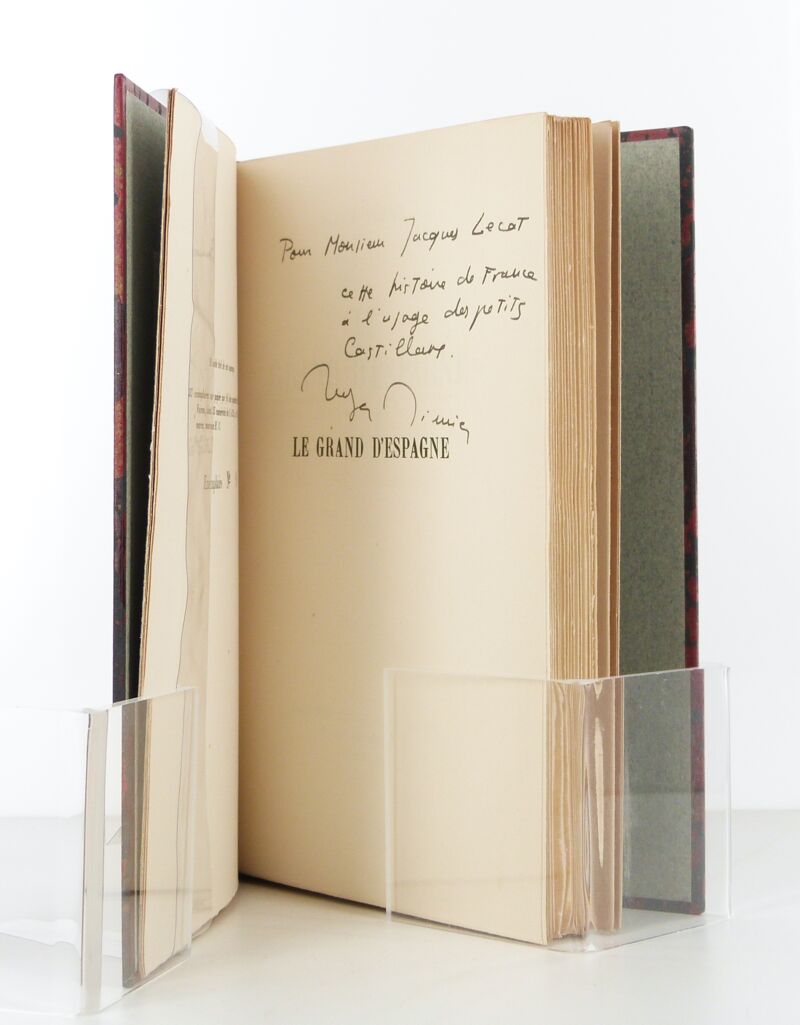 Exemplaire N°
Pour Monsieur Jacques Lecat
cette histoire de France
à l'usage des petits
Castillans.
Roger Nimier
LE GRAND D'ESPAGNE